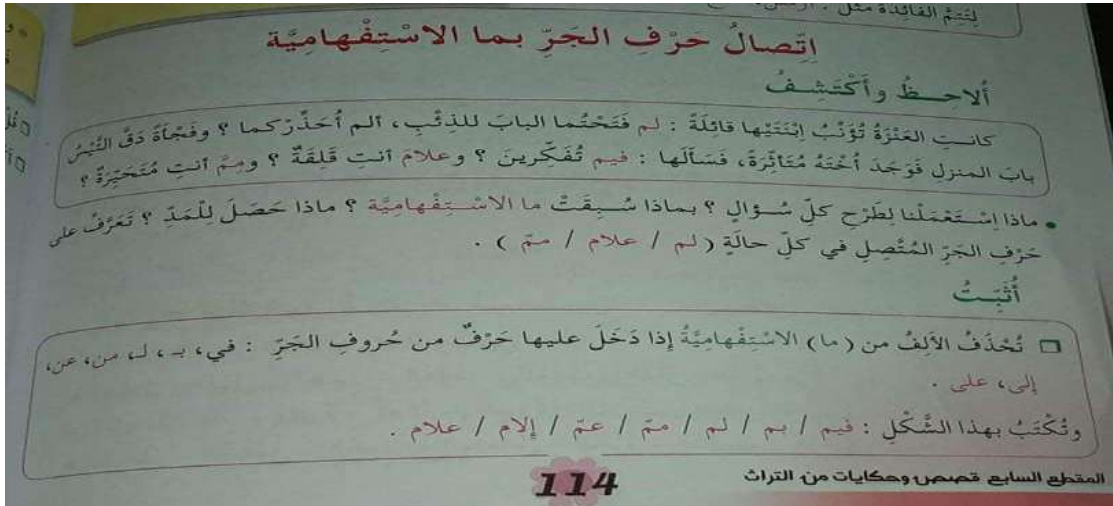 لِتَتِمَّ الفائِدَة مثل :
اِتِّصالُ حَرْفِ الجَرِّ بما الاسْتِفْهامِيَّة
أُلاحِظُ وأَكْتَشِفُ
كانت العَنْزَةُ تُؤَنِّبُ اِبْنَتَيْها قائلَةً : لم فَتَحْتُما البابَ للذِئْبِ، ألم أُحَذِّرْكما ؟ وفَجْأَةً دَقَّ التَّيْسُ
بابَ المنزل فَوَجَدَ أُخْتَهُ مُتَأثِّرَةً، فَسَألَها : فيم تُفَكِّرينَ ؟ وعلامَ أنتِ قَلِقَةٌ ؟ ومِمَّ أنتِ مُتَحَيِّرَةٌ ؟
• ماذا اِسْتَعْمَلْنا لِطَرْحِ كلِّ سُؤالٍ ؟ بماذا سُبِقَتْ ما الاسْتِفْهامِيَّة ؟ ماذا حَصَلَ لِلْمَدِّ ؟ تَعَرَّفْ على
حَرْفِ الجَرِّ المُتَّصِلِ في كلِّ حالَةٍ ( لم / علام / ممّ ) .
أُثَبِّتُ
تُحْذَفُ الألِفُ من ( ما ) الاسْتِفْهامِيَّةُ إذا دَخَلَ عليها حَرْفٌ من حُروفِ الجَرِّ : في، بـ ، لـ، من، عن،
إلى، على .
وتُكْتَبُ بهذا الشَّكْلِ : فيم / بم / لم / ممّ / عمّ / إلام / علام .
المقطع السابع قصص وحكايات من التراث
114